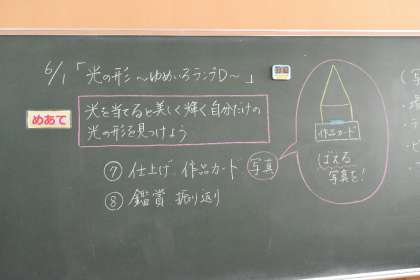 6/1「光の形 ～ゆめいろランプD～」
めあて
光を当てると美しく輝く自分だけの
光の形を見つけよう
⑦ 仕上げ 作品カード 写真
⑧ 鑑賞 振り返り
作品カード
ばえる
写真を!